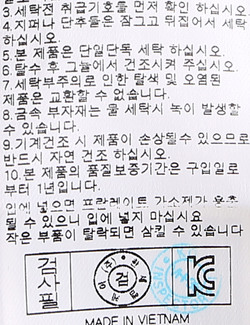 3.세탁전 취급기호를 먼저 확인 하십시오.
4.지퍼나 단추등은 잠그고 뒤집어서 세탁
하십시오.
5.본 제품은 단일단독 세탁 하십시오.
6.탈수 후 그늘에서 건조시켜 주십시오.
7.세탁부주의로 인한 탈색 및 오염된
제품은 교환할 수 없습니다.
8.금속 부자재는 물 세탁시 녹이 발생할
수 있습니다.
9.기계건조 시 제품이 손상될수 있으므로
반드시 자연 건조 하십시오.
10.본 제품의 품질보증기간은 구입일로
부터 1년입니다.
입에 넣으면 프탈레이트 가소제가 용출
될수 있으니 입에 넣지 마십시요
작은 부품이 탈락되면 삼킬 수 있습니다
검사필
검
MADE IN VIETNAM